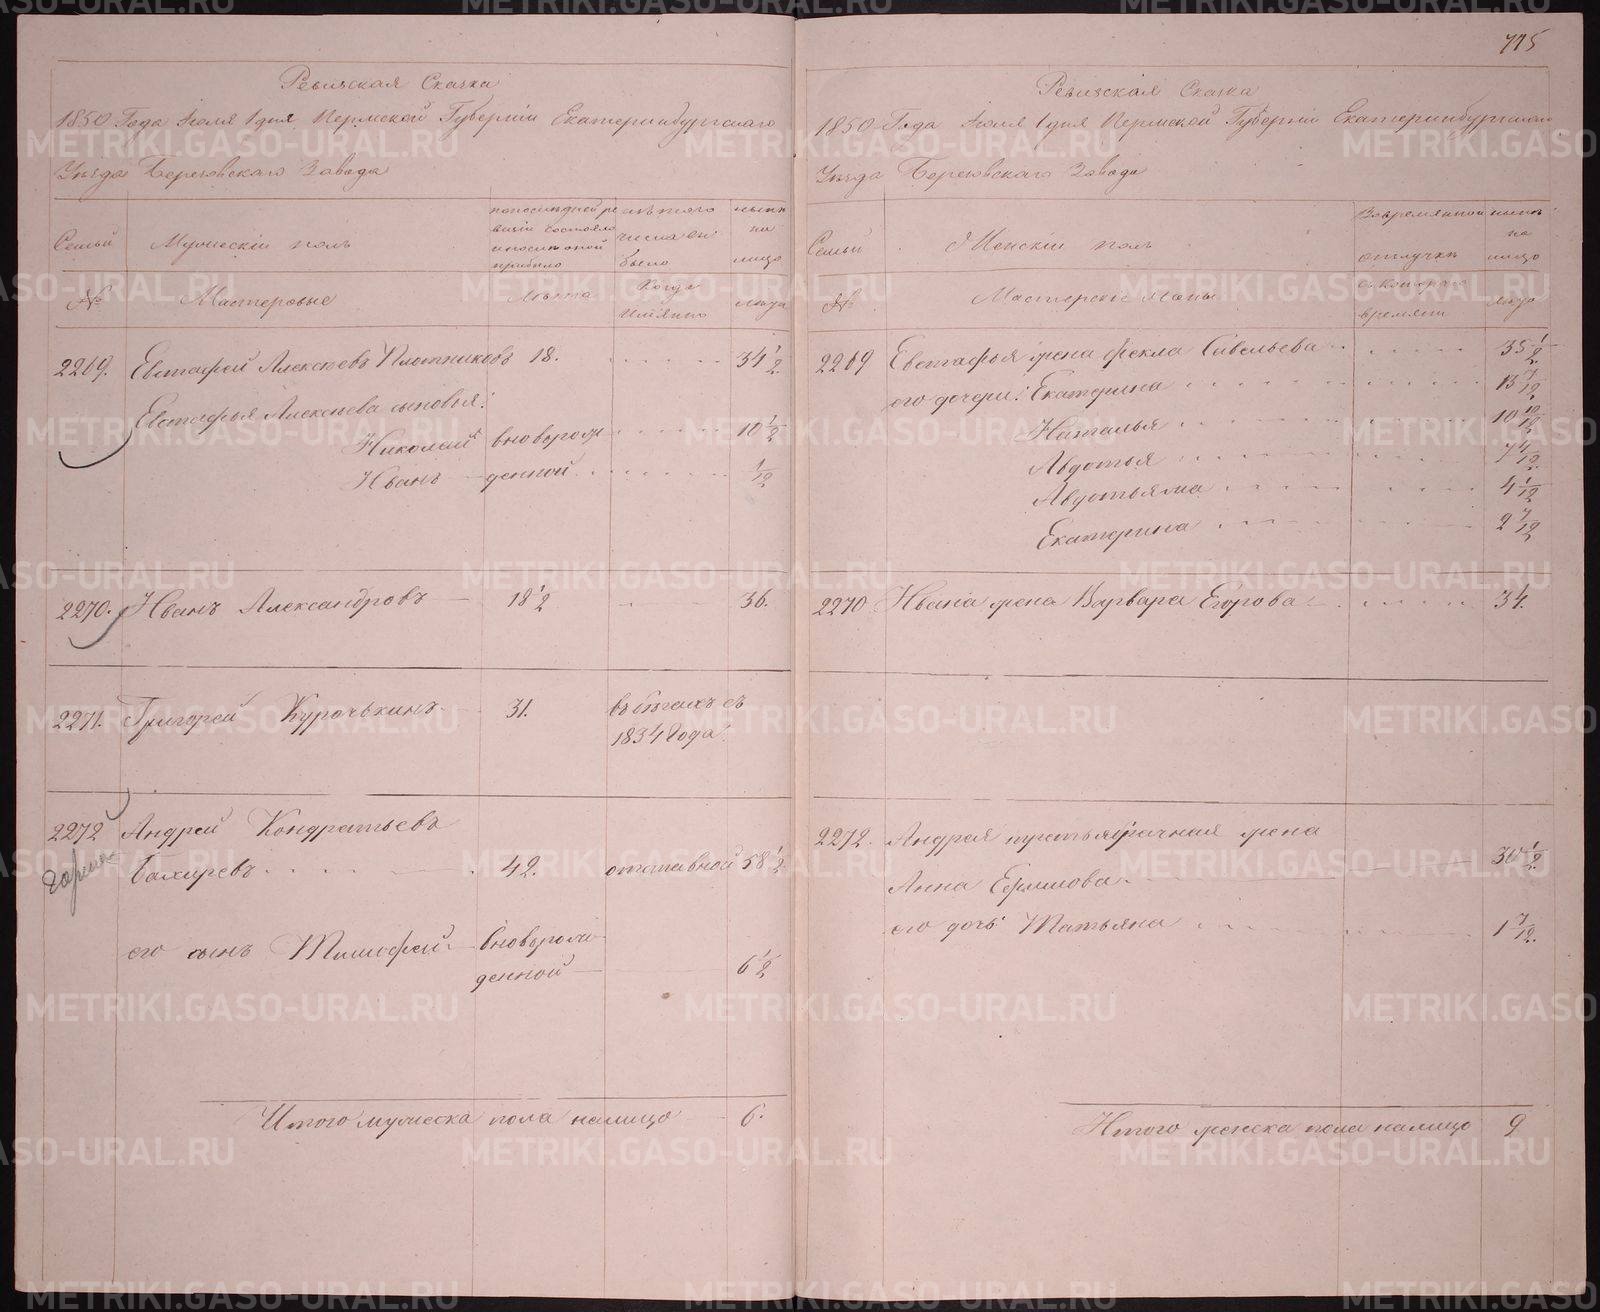 715
Ревизская Сказка
1850 Года Июля 1 дня Пермской Губернiи Екатеринбургскаго
Уѣзда Березовскаго Завода
Семьи
Мужескiй полъ
по последней ре
визiи состояло
и после оной
прибыло
изъ того
числа вы
было
нынѣ
на
лицо
№
Мастеровые
Лѣта
Когда
имянно
лѣта
2269. Евстафей Алексѣевъ Плотниковъ 18. 34 1/2
Евстафья Алексѣева сыновья:
Николай вновьрож 10 1/2
Иванъ денной 1/12
2270. Иванъ Александровъ 18 1/2 36.
2271. Григорей Курочькинъ 31. въ бѣгахъ съ
1834 Года.
2272 Андрей Кондратьевъ
Бахиревъ 42. отставной 58 1/2
его сынъ Тимофей вновьрож
денной 6 1/2
Итого мужеска пола налицо 6.
Ревизская Сказка
1850 Года Июля 1 дня Пермской Губернiи Екатеринбургскаго
Уѣзда Березовскаго Завода
Семьи
Женскiй полъ
Во временной
отлучкѣ
нынѣ
на
лицо
№
Мастерскiе жоны
съ котораго
времяни
лѣта
2269 Евстафья жена Фекла Савельева 35 1/2
его дочери: Екатерина 13 7/12
Наталья 10 10/12
Авдотья 7 4/12
Авдотья ма 4 1/12
Екатерина 2 7/12
2270 Ивана жена Варвара Егорова 34.
2272. Андрея третьябрачная жена
Анна Ермилова 30 1/2
его дочь Татьяна 1 7/12.
Итого женска пола налицо 9
METRIKI.GASO-URAL.RU